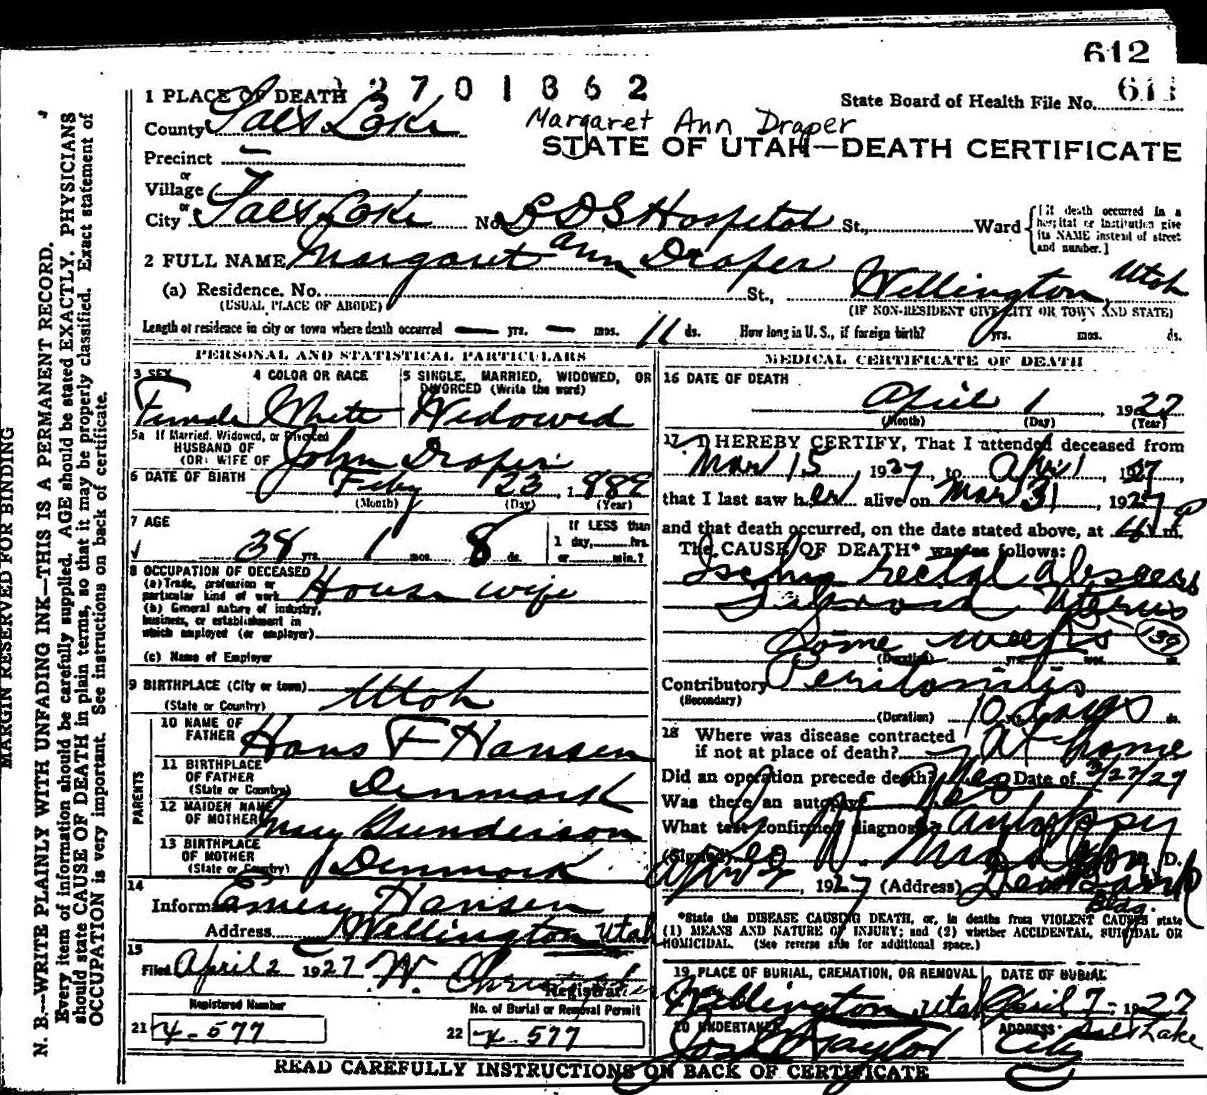 612
3701862
State Board of Health File No. 611
1 PLACE OF DEATH
County Salt Lake
Margaret Ann Draper
STATE OF UTAH—DEATH CERTIFICATE
Precinct —
or
Village
or
City Salt Lake No. L D S Hospital St., Ward
[If death occurred in a hospital or institution give its NAME instead of street and number.]
2 FULL NAME Margaret Ann Draper
(a) Residence. No. St., Wellington, Utah
(USUAL PLACE OF ABODE) (IF NON-RESIDENT GIVE CITY OR TOWN AND STATE)
Length of residence in city or town where death occurred — yrs. — mos. 11 ds. How long in U. S., if foreign birth? yrs. mos. ds.
PERSONAL AND STATISTICAL PARTICULARS
3 SEX Female
4 COLOR OR RACE White
5 SINGLE, MARRIED, WIDOWED, OR DIVORCED (Write the word) Widowed
5a If Married, Widowed, or Divorced
HUSBAND OF
(OR) WIFE OF John Draper
6 DATE OF BIRTH Feby 23, 1889
(Month) (Day) (Year)
7 AGE
38 yrs. 1 mos. 8 ds.
If LESS than
1 day, hrs.
or min.?
8 OCCUPATION OF DECEASED
(a) Trade, profession or
particular kind of work House wife
(b) General nature of industry,
business, or establishment in
which employed (or employer)
(c) Name of Employer
9 BIRTHPLACE (City or town)
(State or Country) Utah
PARENTS
10 NAME OF
FATHER Hans F Hansen
11 BIRTHPLACE
OF FATHER
(State or Country) Denmark
12 MAIDEN NAME
OF MOTHER Mary Gunderson
13 BIRTHPLACE
OF MOTHER
(State or Country) Denmark
14
Informant Hansen
Address Wellington Utah
15
Filed April 2 1927 W.
Registrar
Registered Number
21 4-577
No. of Burial or Removal Permit
22 4-577
MEDICAL CERTIFICATE OF DEATH
16 DATE OF DEATH
April 1, 1927
(Month) (Day) (Year)
17 I HEREBY CERTIFY, That I attended deceased from
Mar 15, 1927, to Apr 1 1927,
that I last saw her alive on Mar 31, 1927
and that death occurred, on the date stated above, at P m.
The CAUSE OF DEATH* was as follows:
Ischio rectal abscess
Uterus
Some weeks 139
(Duration) yrs. mos. ds.
Contributory Peritonitis
(Secondary)
(Duration) yrs. 10 days ds.
18 Where was disease contracted
if not at place of death? At home
Did an operation precede death? Yes Date of 3/27/27
Was there an autopsy? Yes
What test confirmed diagnosis? Autopsy
(Signed) M. D.
Apr 2, 1927 (Address) Bldg.
*State the DISEASE CAUSING DEATH, or, in deaths from VIOLENT CAUSES state
(1) MEANS AND NATURE OF INJURY; and (2) whether ACCIDENTAL, SUICIDAL OR
HOMICIDAL. (See reverse side for additional space.)
19 PLACE OF BURIAL, CREMATION, OR REMOVAL
Wellington, Utah
DATE OF BURIAL
April 7 - 1927
20 UNDERTAKER
Jos Taylor
ADDRESS
Salt Lake
City
READ CAREFULLY INSTRUCTIONS ON BACK OF CERTIFICATE
MARGIN RESERVED FOR BINDING
N. B.—WRITE PLAINLY WITH UNFADING INK—THIS IS A PERMANENT RECORD.
Every item of information should be carefully supplied. AGE should be stated EXACTLY. PHYSICIANS
should state CAUSE OF DEATH in plain terms, so that it may be properly classified. Exact statement of
OCCUPATION is very important. See instructions on back of certificate.